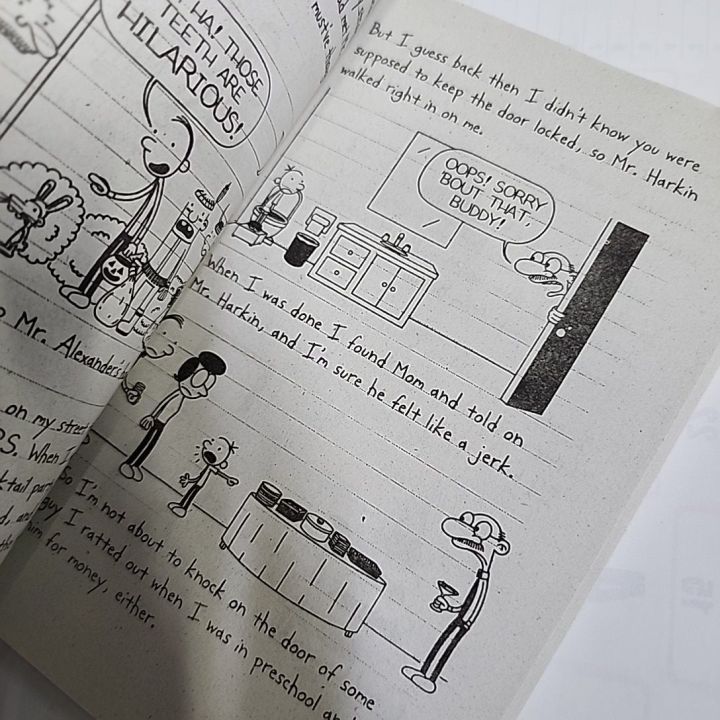 HA! THOSE
TEETH ARE
HILARIOUS!
Mr. Alexander's
on my street
When I
But I guess back then I didn't know you were
supposed to keep the door locked, so Mr. Harkin
walked right in on me.
OOPS! SORRY
'BOUT THAT,
BUDDY!
When I was done I found Mom and told on
Mr. Harkin, and I'm sure he felt like a jerk.
So I'm not about to knock on the door of some
guy I ratted out when I was in preschool
him for money, either.